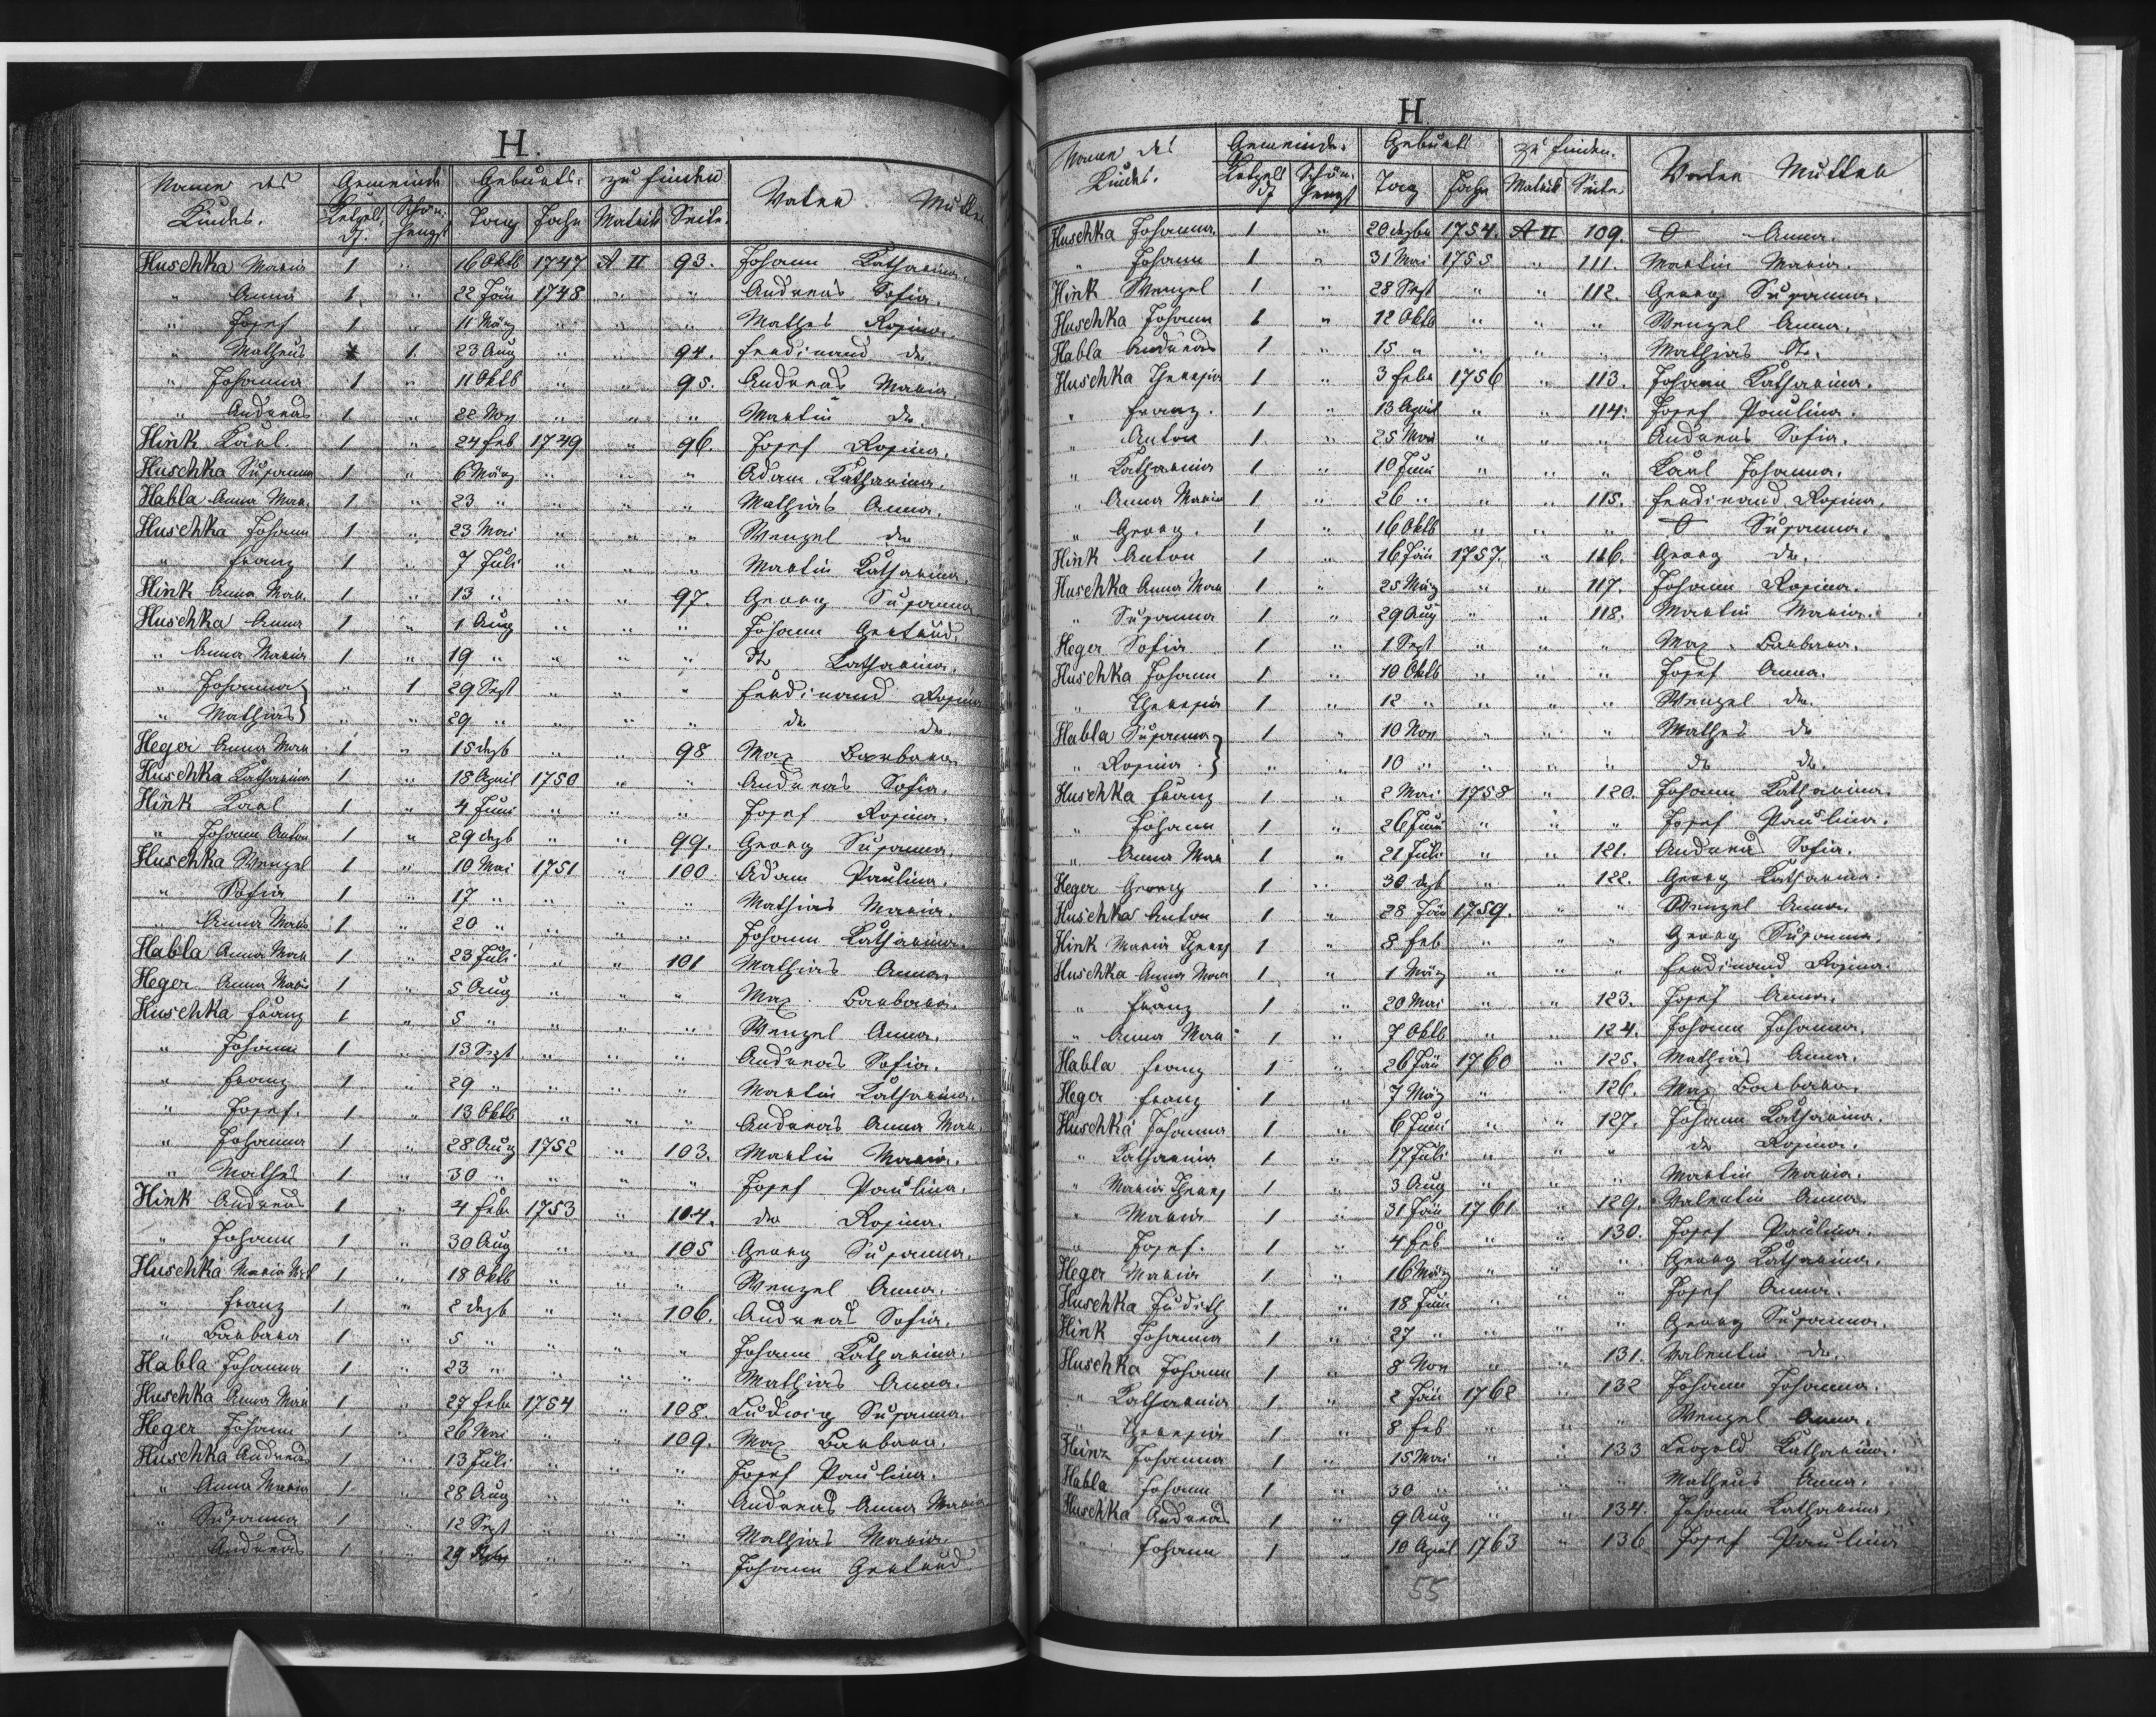 H.
Name des Kindes. Gemeinde Geburts. zu finden Vater. Mutter
Ketzelsdf. Schönhengst Tag Jahr Matrik Seite.
Huschka Maria 1 " 16 Oktb 1747 A II 93. Johann Katharina.
" Anna 1 " 22 Jän 1748 " " Andreas Sofia.
" Josef 1 " 11 März " " " Mathes Rosina.
" Matheus 1. 23 Aug " " 94. Ferdinand do.
" Johanna 1 " 11 Oktb " " 95. Andreas Maria.
" Andreas 1 " 22 Nov " " " Martin do.
Hink Karl 1 " 24 Feb 1749 " 96. Josef Rosina.
Huschka Susanna 1 " 6 März " " " Adam Katharina.
Habla Anna Mar. 1 " 23 " " " " Mathias Anna.
Huschka Johann 1 " 23 Mai " " " Wenzel do
" Franz 1 " 7 Juli " " " Martin Katharina.
Hink Anna Mar. 1 " 13 " " " 97. Georg Susanna
Huschka Anna 1 " 1 Aug " " " Johann Gertrud.
" Anna Maria 1 " 19 " " " " dto Katharina.
" Johanna } " 1 29 Sept " " " Ferdinand Rosina
" Mathias } " " 29 " " " " do do.
Heger Anna Mar 1 " 15 dezb " " 98 Max Barbara
Huschka Katharina 1 " 18 April 1750 " " Andreas Sofia.
Hink Karl 1 " 4 Juni " " " Josef Rosina.
" Johann Anton 1 " 29 dezb " " 99. Georg Susanna.
Huschka Wenzel 1 " 10 Mai 1751 " 100 Adam Paulina.
" Sofia 1 " 17 " " " " Mathias Maria.
" Anna Maria 1 " 20 " " " " Johann Katharina.
Habla Anna Mar 1 " 23 Juli " " 101 Mathias Anna.
Heger Anna Maria 1 " 5 Aug " " " Max. Barbara.
Huschka Franz 1 " 5 " " " " Wenzel Anna.
" Johann 1 " 13 Sept " " " Andreas Sofia.
" Franz 1 " 29 " " " " Martin Katharina.
" Josef. 1 " 13 Oktb " " " Andreas Anna Mar.
" Johanna 1 " 28 Aug 1752 " 103. Martin Maria.
" Mathes 1 " 30 " " " " Josef Paulina.
Hink Andreas 1 " 4 Febr 1753 " 104. do Rosina.
" Johann 1 " 30 Aug " " 105 Georg Susanna.
Huschka Maria 1 " 18 Oktb " " " Wenzel Anna.
" Franz 1 " 2 dezb " " 106. Andreas Sofia.
" Barbara 1 " 5 " " " " Johann Katharina.
Habla Johanna 1 " 23 " " " " Mathias Anna.
Huschka Anna Mari 1 " 27 Febr 1754 " 108. Ludwig Susanna.
Heger Johann 1 " 26 Mai " " 109. Max Barbara.
Huschka Andreas 1 " 13 Juli " " " Josef Paulina.
" Anna Maria 1 " 28 Aug " " " Andreas Anna Maria
" Susanna 1 " 12 Sept " " " Mathias Maria.
" Andreas 1 " 29 " " " Johann Gertrud
H
Name des Kindes. Gemeinde. Geburts zu finden. Vater Mutter
Ketzelsdf Schönhengst Tag Jahr Matrik Seite.
Huschka Johanna 1 " 20 dezbr 1754. A II 109. O Anna.
" Johann 1 " 31 Mai 1755 " 111. Martin Maria.
Hink Wenzel 1 " 28 Sept " " 112. Georg Susanna.
Huschka Johann 1 " 12 Oktb " " " Wenzel Anna.
Habla Andreas 1 " 15 " " " " Mathias dto.
Huschka Theresia 1 " 3 Febr 1756 " 113. Johann Katharina.
" Franz. 1 " 13 April " " 114. Josef Paulina.
" Anton 1 " 25 Mai " " " Andreas Sofia.
" Katharina 1 " 10 Juni " " " Karl Johanna.
" Anna Maria 1 " 26 " " " 115. Ferdinand Rosina.
" Georg. 1 " 16 Oktb " " " O Susanna.
Hink Anton 1 " 16 Jän 1757. " 116. Georg do.
Huschka Anna Mar 1 " 25 März " " 117. Johann Rosina.
" Susanna 1 " 29 Aug " " 118. Martin Maria.
Heger Sofia 1 " 1 Sept " " " Max. Barbara.
Huschka Johann 1 " 10 Oktb " " " Josef Anna.
" Theresia 1 " 12 " " " " Wenzel do.
Habla Susanna } 1 " 10 Nov " " " Mathes do
" Rosina } " " 10 " " " " do do.
Huschka Franz 1 " 2 Mai 1758 " 120. Johann Katharina.
" Johann 1 " 26 Juni " " " Josef Paulina.
" Anna Mar 1 " 21 Juli " " 121. Andreas Sofia.
Heger Georg 1 " 30 dezb " " 122. Georg Katharina.
Huschka Anton 1 " 28 Jän 1759. " " Wenzel Anna.
Hink Maria Theres 1 " 8 Feb " " " Georg Susanna.
Huschka Anna Mar 1 " 1 März " " " Ferdinand Rosina.
" Franz 1 " 20 Mai " " 123. Josef Anna.
" Anna Mar. 1 " 7 Oktb " " 124. Johann Johanna.
Habla Franz 1 " 26 Jän 1760 " 125. Mathias Anna.
Heger Franz 1 " 7 März " " 126. Max Barbara.
Huschka Johanna 1 " 6 Juni " " 127. Johann Katharina.
" Katharina 1 " 17 Juli " " " do Rosina.
" Maria Theres 1 " 3 Aug " " " Martin Maria.
" Maria 1 " 31 Jän 1761 " 129. Valentin Anna.
" Josef. 1 " 4 Feb " " 130. Josef Paulina.
Heger Maria 1 " 16 März " " " Georg Katharina.
Huschka Judith 1 " 18 Juni " " " Josef Anna.
Hink Johanna 1 " 27 " " " " Georg Susanna.
Huschka Johann 1 " 8 Nov " " 131. Valentin do.
" Katharina 1 " 2 Jän 1762 " 132 Johann Johanna.
" Theresia 1 " 8 Feb " " " Wenzel Anna.
Heinz Johanna 1 " 15 Mai " " 133 Leopold Katharina.
Habla Johann 1 " 30 " " " " Matheus Anna.
Huschka Andreas 1 " 9 Aug " " 134. Johann Katharina.
" Johann 1 " 10 April 1763 " 136 Josef Paulina
55